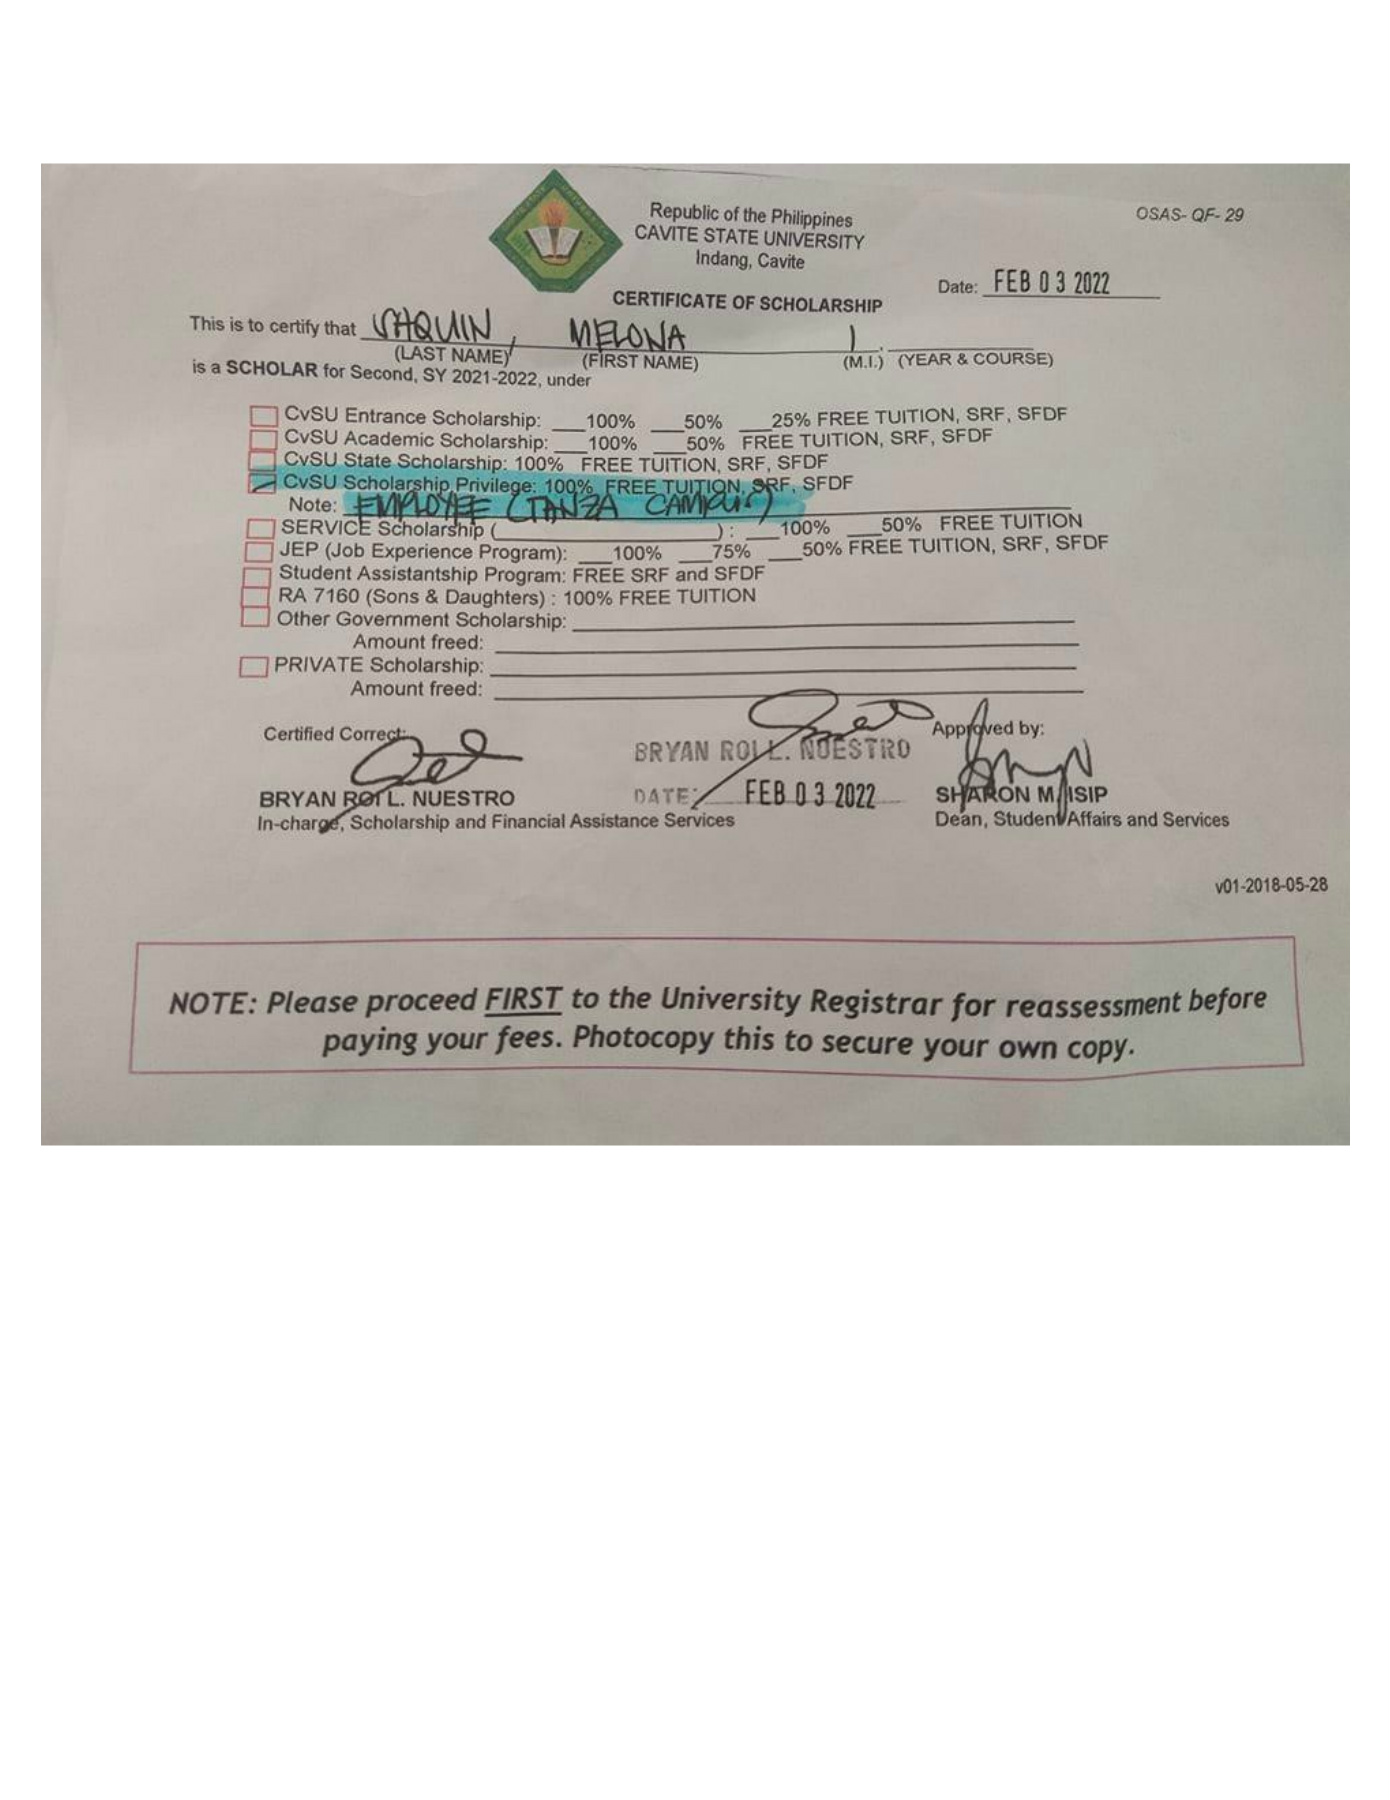 Republic of the Philippines
OSAS- QF- 29
CAVITE STATE UNIVERSITY
Indang, Cavite
Date: FEB 03 2022
CERTIFICATE OF SCHOLARSHIP
This is to certify that SAQUIN, MELONA I.
(LAST NAME) (FIRST NAME) (M.I.) (YEAR & COURSE)
is a SCHOLAR for Second, SY 2021-2022, under
CvSU Entrance Scholarship: ___100% ___50% ___25% FREE TUITION, SRF, SFDF
CvSU Academic Scholarship: ___100% ___50% FREE TUITION, SRF, SFDF
CvSU State Scholarship: 100% FREE TUITION, SRF, SFDF
CvSU Scholarship Privilege: 100% FREE TUITION, SRF, SFDF
Note: EMPLOYEE (TANZA CAMPUS)
SERVICE Scholarship ( ) : ___100% ___50% FREE TUITION
JEP (Job Experience Program): ___100% ___75% ___50% FREE TUITION, SRF, SFDF
Student Assistantship Program: FREE SRF and SFDF
RA 7160 (Sons & Daughters) : 100% FREE TUITION
Other Government Scholarship:
Amount freed:
PRIVATE Scholarship:
Amount freed:
Certified Correct:
Approved by:
BRYAN ROI L. NUESTRO
DATE: FEB 03 2022
BRYAN ROI L. NUESTRO
SHARON M. ISIP
In-charge, Scholarship and Financial Assistance Services
Dean, Student Affairs and Services
v01-2018-05-28
NOTE: Please proceed FIRST to the University Registrar for reassessment before
paying your fees. Photocopy this to secure your own copy.